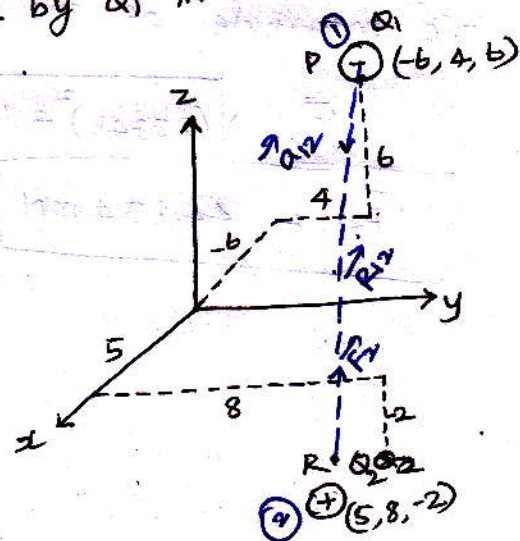 by Q1
① Q1
P - (-6, 4, 6)
z
a12
6
4
-6
R12
y
5
F2
8
-2
x
R Q2
② + (5, 8, -2)